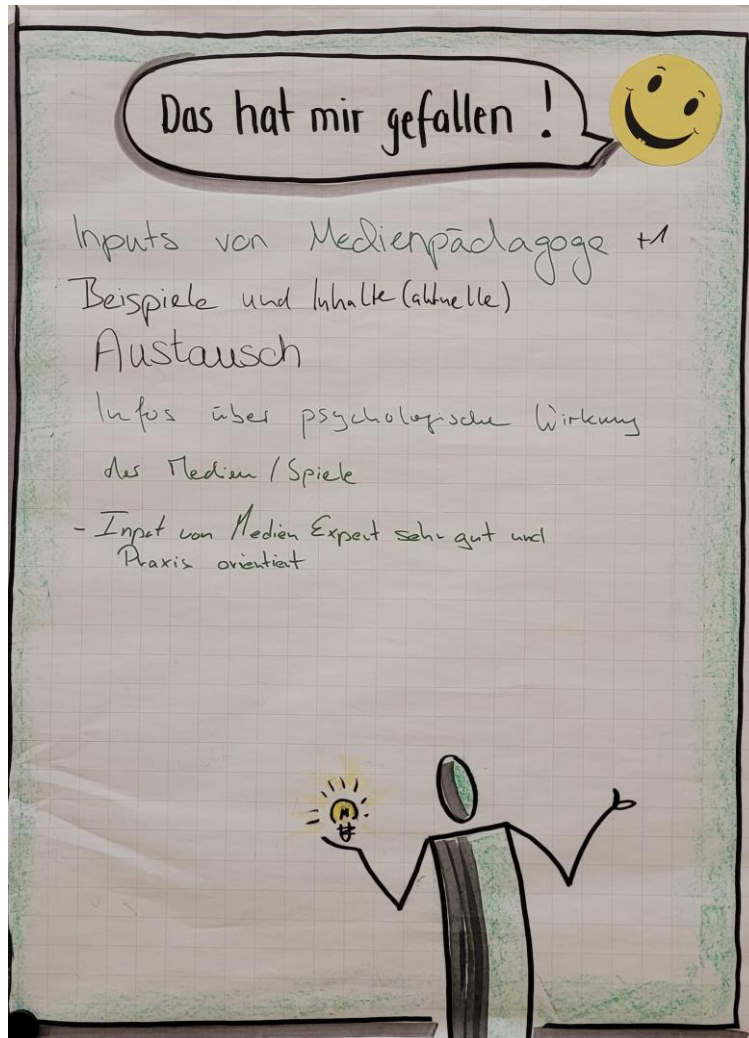 Das hat mir gefallen !
Inputs von Medienpädagoge +1
Beispiele und Inhalte (aktuelle)
Austausch
Infos über psychologische Wirkung
der Medien / Spiele
- Input von Medien Expert sehr gut und
Praxis orientiert